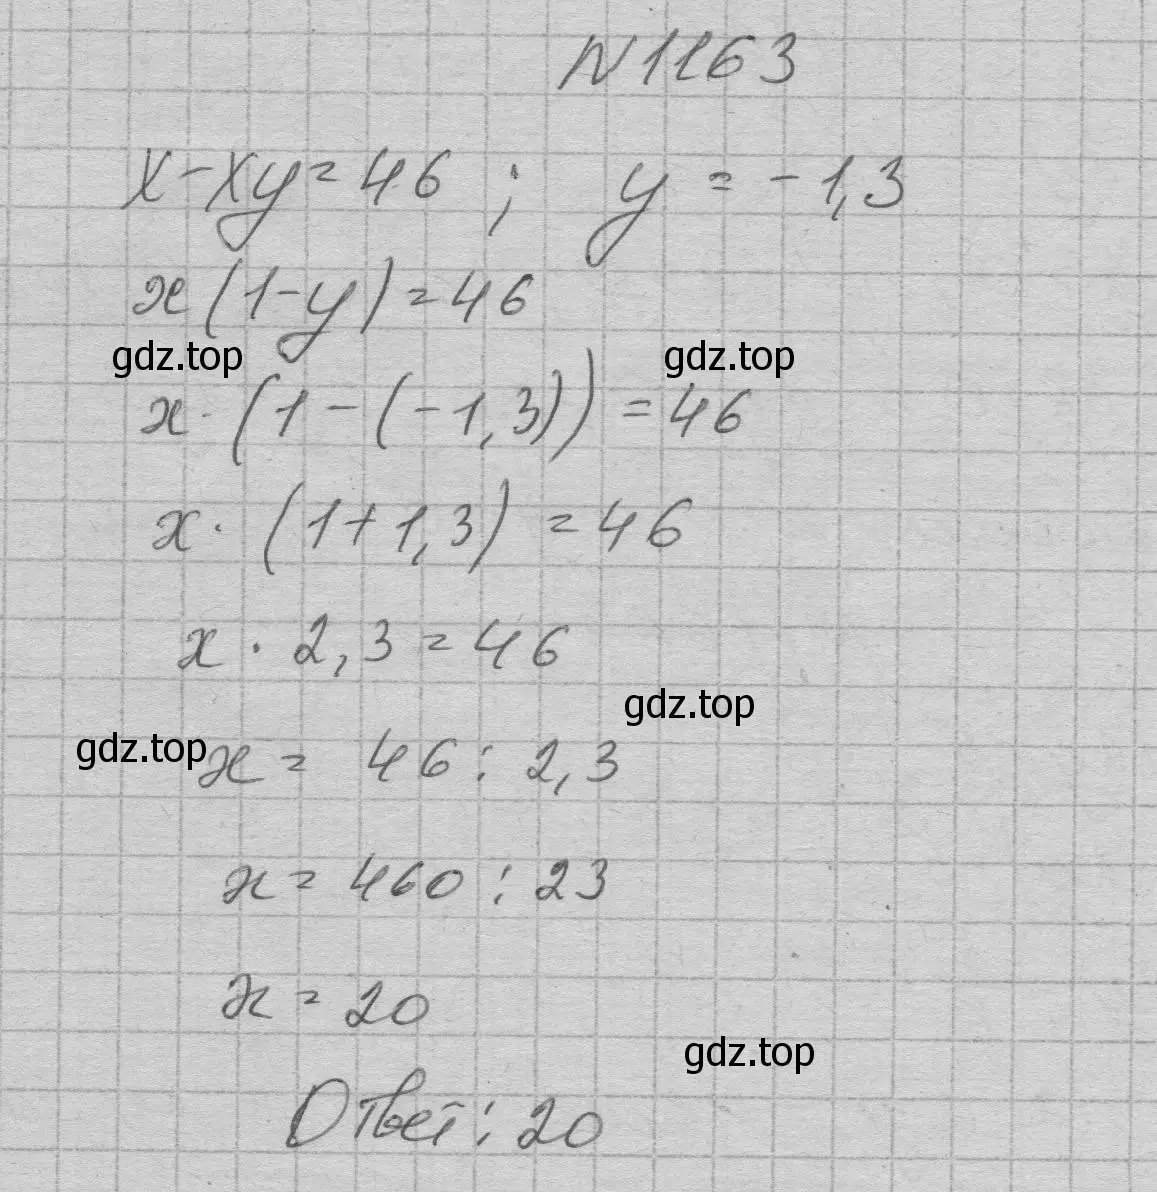 N1163
x-xy=46 ; y = -1,3
x(1-y)=46
gdz.top gdz.top
x·(1-(-1,3))=46
x·(1+1,3)=46
x·2,3=46
gdz.top
gdz.top
x= 46:2,3
x=460:23
x=20
gdz.top
Ответ:20